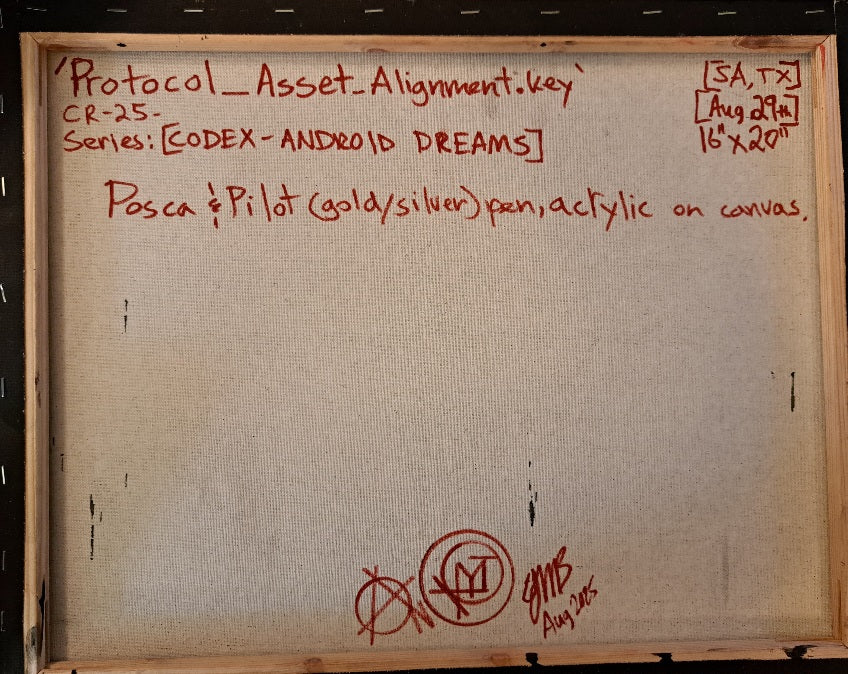 'Protocol_Asset_Alignment.key'
[SA, TX]
CR-25-
[Aug 29th]
Series: [CODEX-ANDROID DREAMS]
16" x 20"
Posca & Pilot (gold/silver) pen, acrylic on canvas.
Aug 2025